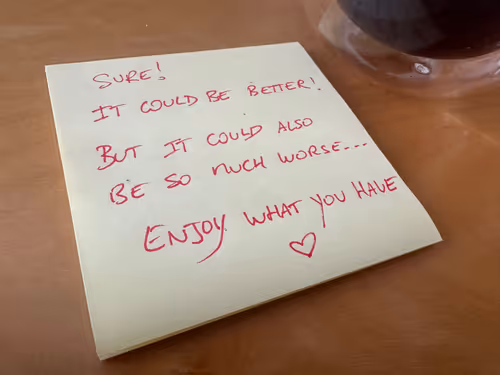 SURE!
IT COULD BE BETTER!
BUT IT COULD ALSO
BE SO MUCH WORSE...
ENJOY WHAT YOU HAVE
♡